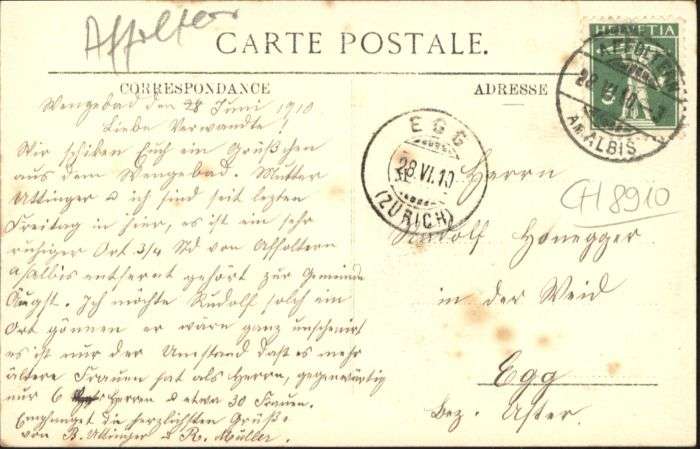 Affoltern
CARTE POSTALE.
CORRESPONDANCE
ADRESSE
HELVETIA
5
AFFOLTERN
28.VI.10
AM ALBIS
EGG
28.VI.10
(ZÜRICH)
CH 8910
Wengebad den 28 Juni 1910
Liebe Verwandte!
Wir schiken Euch ein Grüßchen
aus dem Wengebad. Mutter
Uttinger u ich sind seit letzten
Freitag in hier, es ist ein sehr
ruhiger Ort 3/4 Std von Affoltern
a/albis entfernt gehört zur Gemeinde
Äugst. Ich möchte Rudolf solch ein
Ort gönnen er wäre ganz unscheniert
es ist nur der Umstand daß es mehr
ältere Frauen hat als Herrn, gegenwärtig
nur 6 Herren u etwa 30 Frauen.
Empfanget die herzlichsten Grüße
von B. Uttinger u R. Müller.
Herrn
Rudolf Honegger
in der Weid
Egg
Bez. Uster.